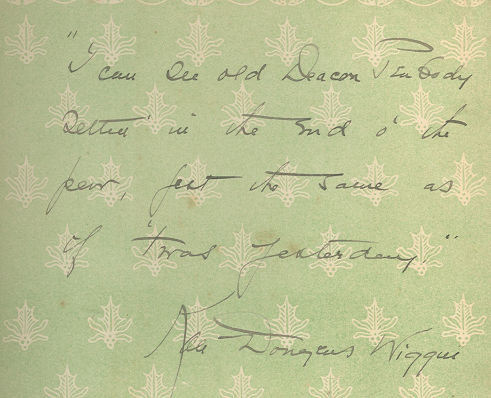 "I can see old Deacon Peabody
settin' in the end o' the
pew, jest the same as
if 'twas yesterday."
Kate Douglas Wiggin